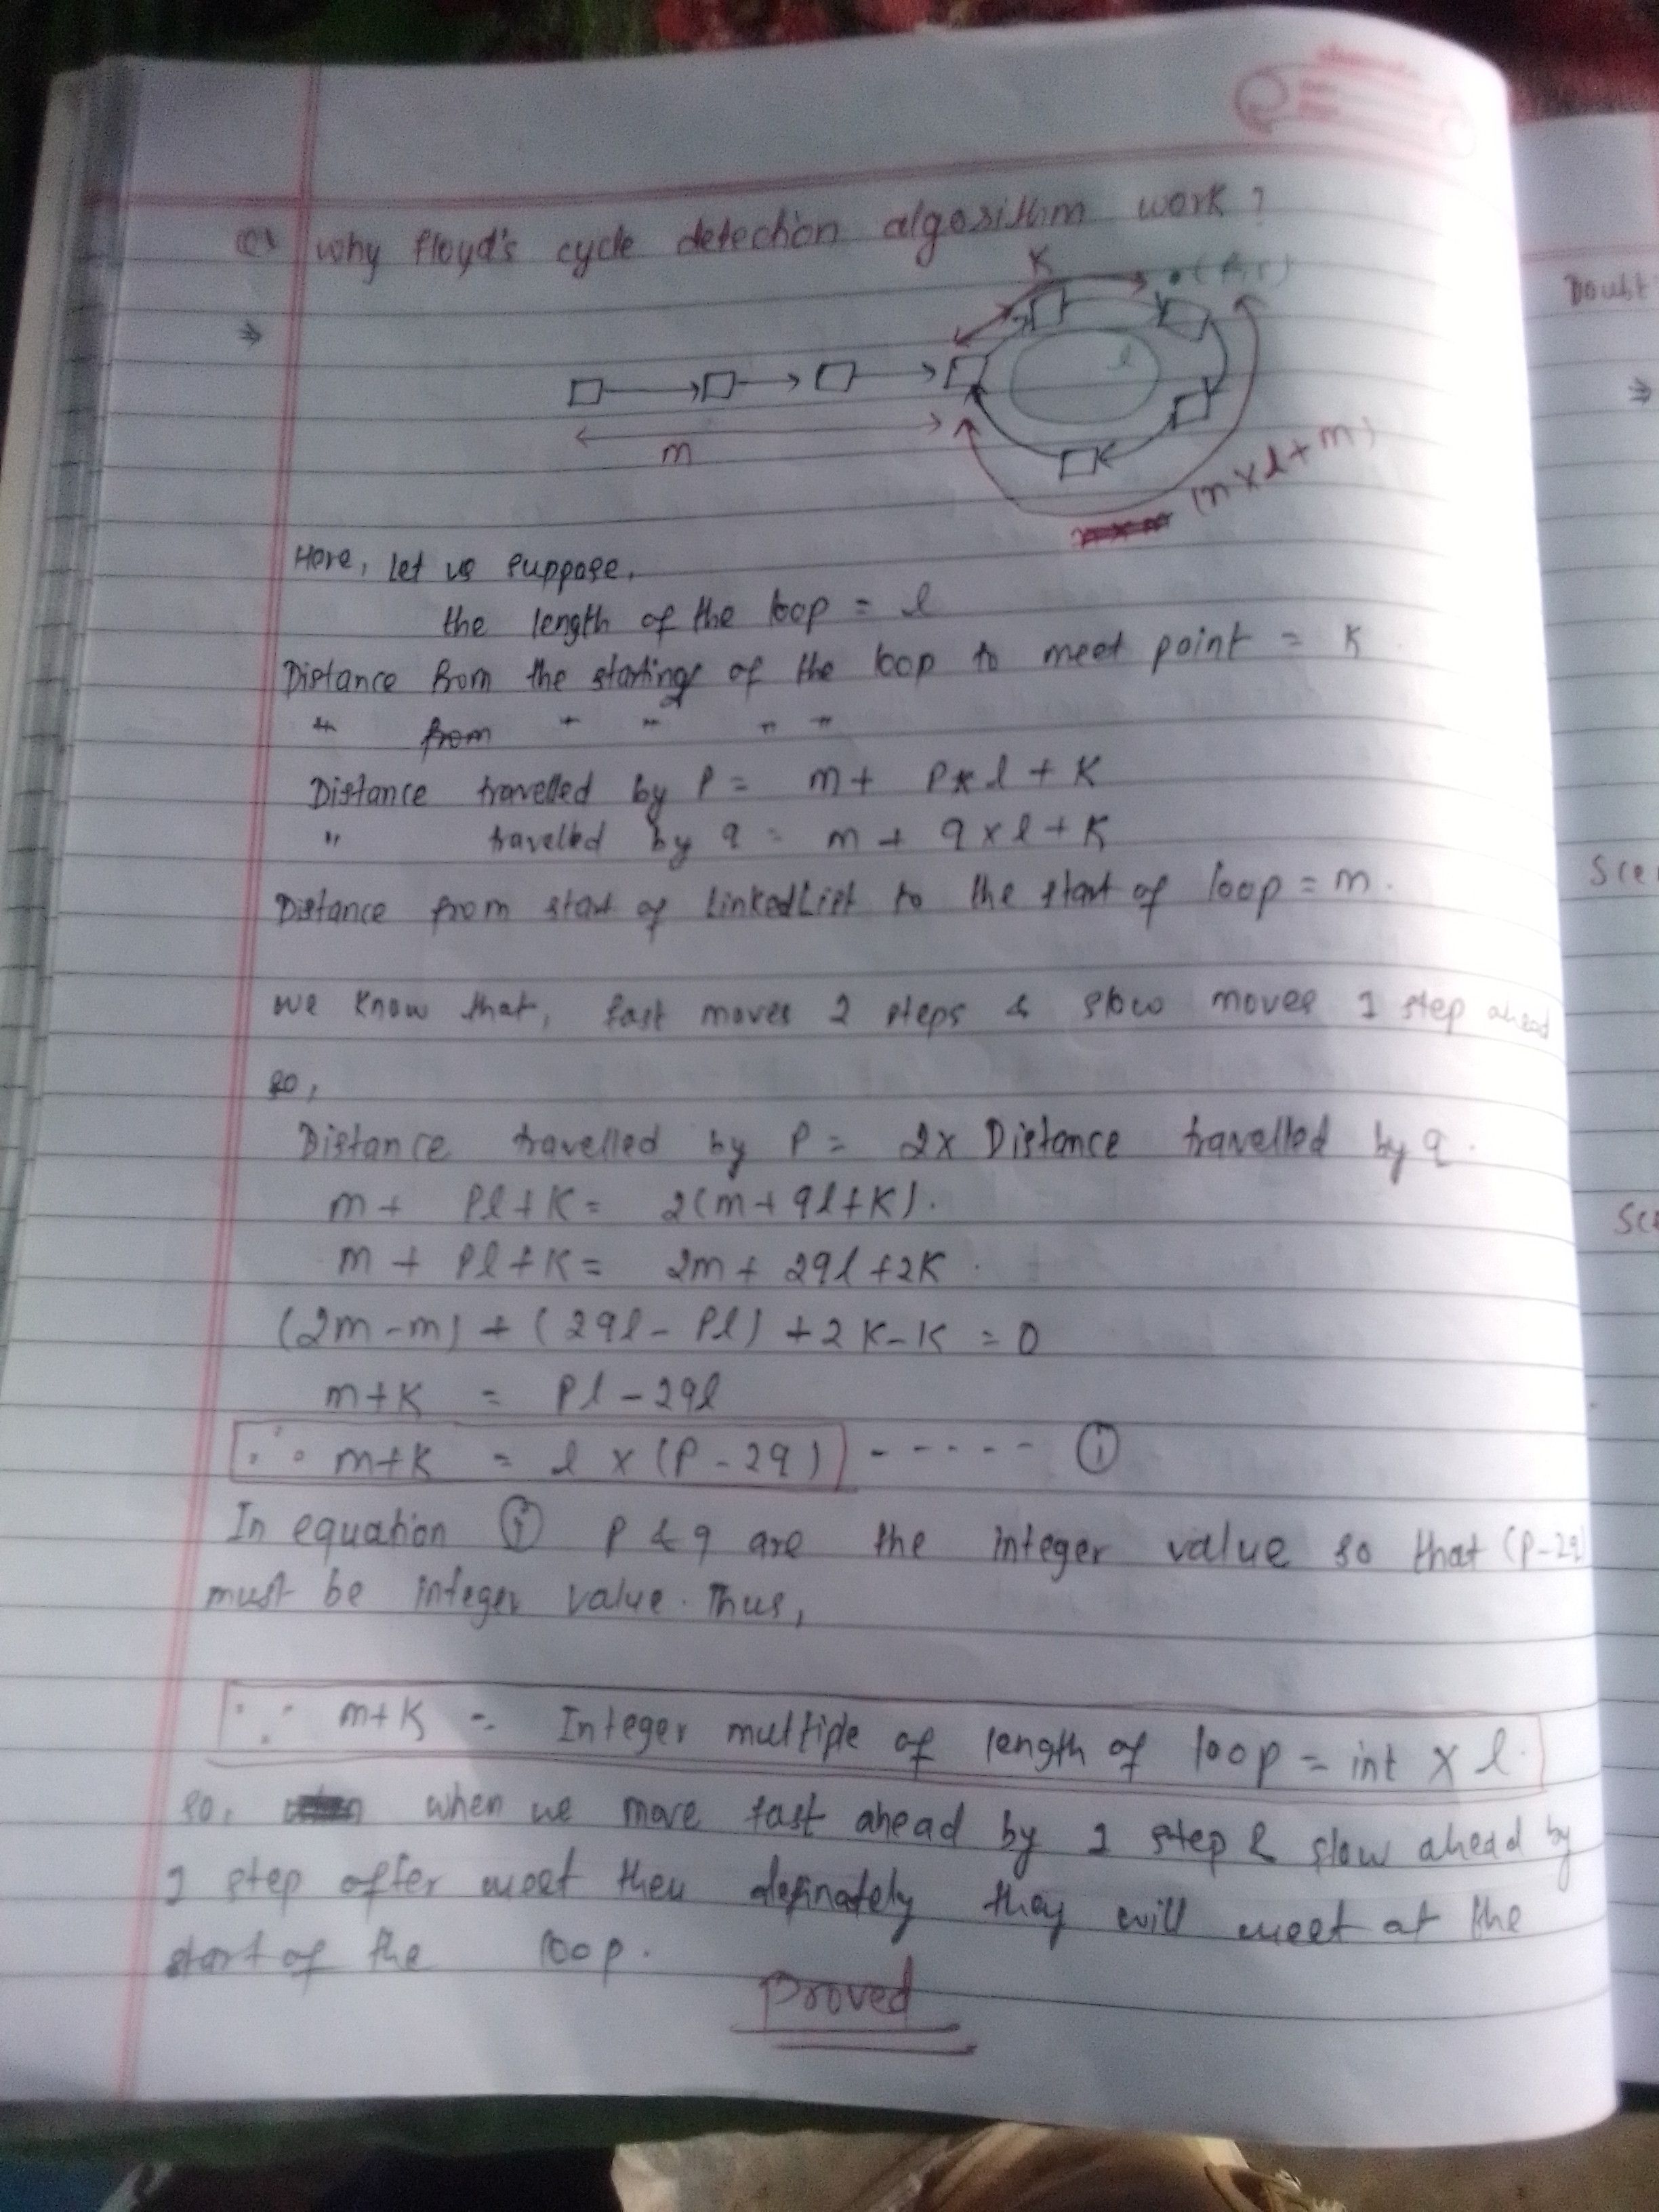 Q) why floyd's cycle detection algorithm work?
⇒
K
l
m
(n×l+m)
Here, let us suppose,
the length of the loop = l
Distance from the starting of the loop to meet point = K
" from " " " "
Distance travelled by P = m + P×l + K
" travelled by q = m + q×l + K
Distance from start of LinkedList to the start of loop = m.
we know that, fast moves 2 steps & slow moves 1 step ahead
so,
Distance travelled by P = 2× Distance travelled by q.
m + Pl + K = 2(m + ql + K).
m + Pl + K = 2m + 2ql + 2K.
(2m - m) + (2ql - Pl) + 2K - K = 0
m + K = Pl - 2ql
∴ m + K = l × (P - 2q) ----- (i)
In equation (i) P & q are the integer value so that (P-2q)
must be integer value. Thus,
∴ m + K = Integer multiple of length of loop = int × l.
so, when we move fast ahead by 1 step & slow ahead by
1 step after meet then definately they will meet at the
start of the loop.
Proved
Doubt
⇒
Sce
Sce